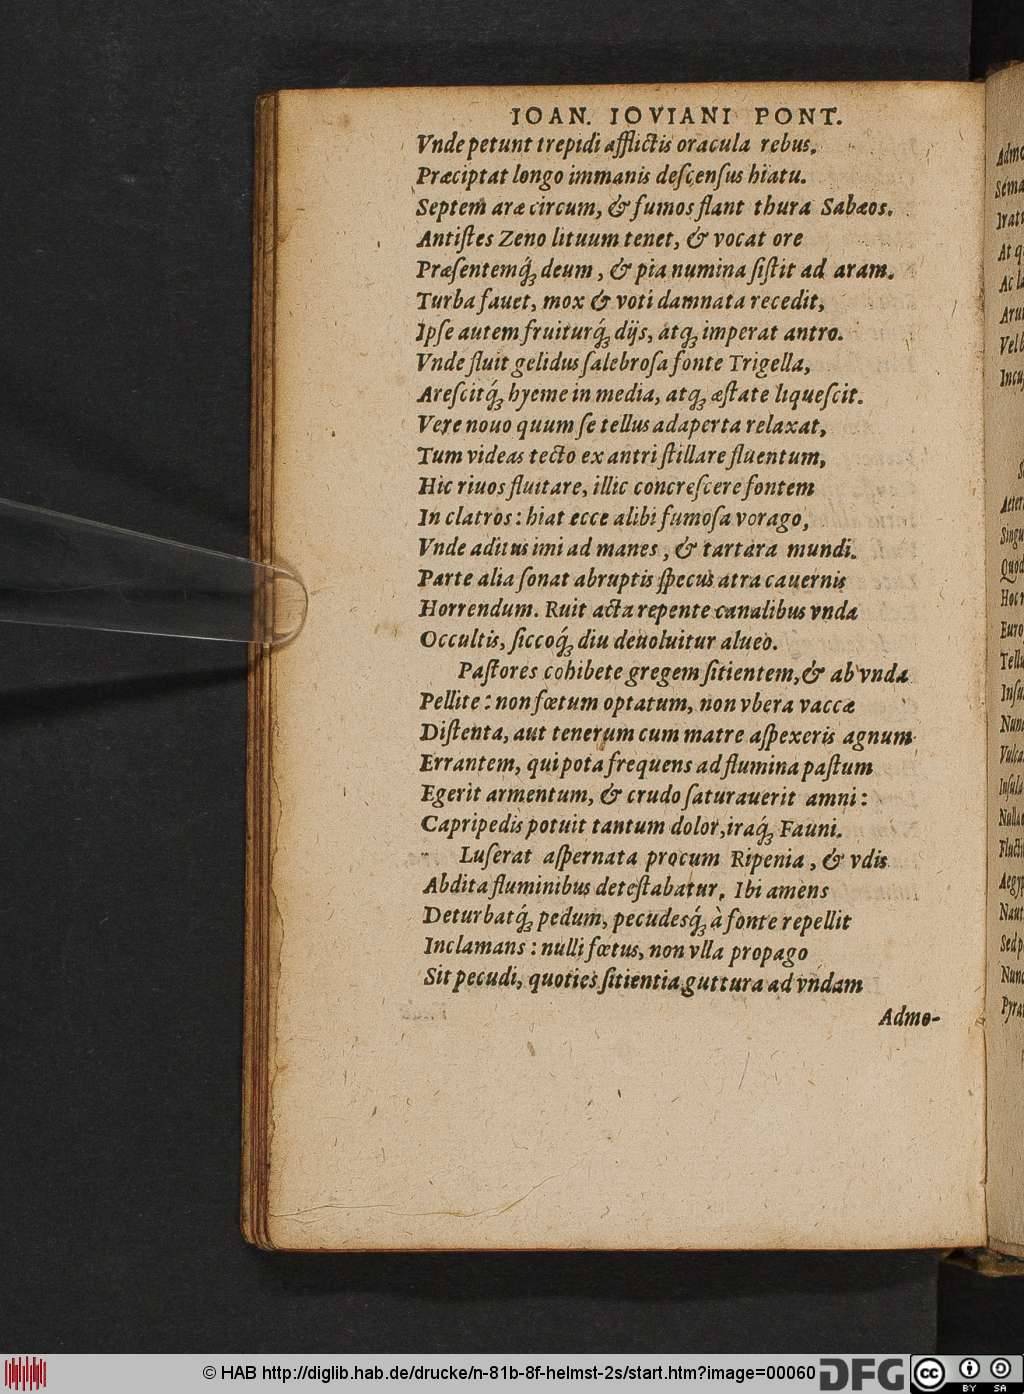 IOAN. IOVIANI PONT.
Vnde petunt trepidi afflictis oracula rebus.
Præcipitat longo immanis deſcenſus hiatu.
Septem aræ circum, & fumos flant thura Sabæos.
Antiſtes Zeno lituum tenet, & vocat ore
Præſentemq́ꝫ deum, & pia numina ſiſtit ad aram.
Turba fauet, mox & voti damnata recedit,
Ipſe autem fruiturq́ꝫ dijs, atqꝫ imperat antro.
Vnde fluit gelidus ſalebroſa fonte Trigella,
Areſcitq́ꝫ hyeme in media, atqꝫ æſtate liqueſcit.
Vere nouo quum ſe tellus adaperta relaxat,
Tum videas tecto ex antri ſtillare fluentum,
Hic riuos fluitare, illic concreſcere fontem
In clatros: hiat ecce alibi fumoſa vorago,
Vnde aditus imi ad manes, & tartara mundi.
Parte alia ſonat abruptis ſpecus atra cauernis
Horrendum. Ruit acta repente canalibus vnda
Occultis, ſiccoq́ꝫ diu deuoluitur alueo.
Paſtores cohibete gregem ſitientem, & ab vnda
Pellite: non fœtum optatum, non vbera vaccæ
Diſtenta, aut tenerum cum matre aſpexeris agnum
Errantem, qui pota frequens ad flumina paſtum
Egerit armentum, & crudo ſaturauerit amni:
Capripedis potuit tantum dolor, iraq́ꝫ Fauni.
Luſerat aſpernata procum Ripenia, & vdis
Abdita fluminibus deteſtabatur. Ibi amens
Deturbatq́ꝫ pedum, pecudesq́ꝫ à fonte repellit
Inclamans: nulli fœtus, non vlla propago
Sit pecudi, quoties ſitientia guttura ad vndam
Admo-
© HAB http://diglib.hab.de/drucke/n-81b-8f-helmst-2s/start.htm?image=00060
DFG
cc
BY SA